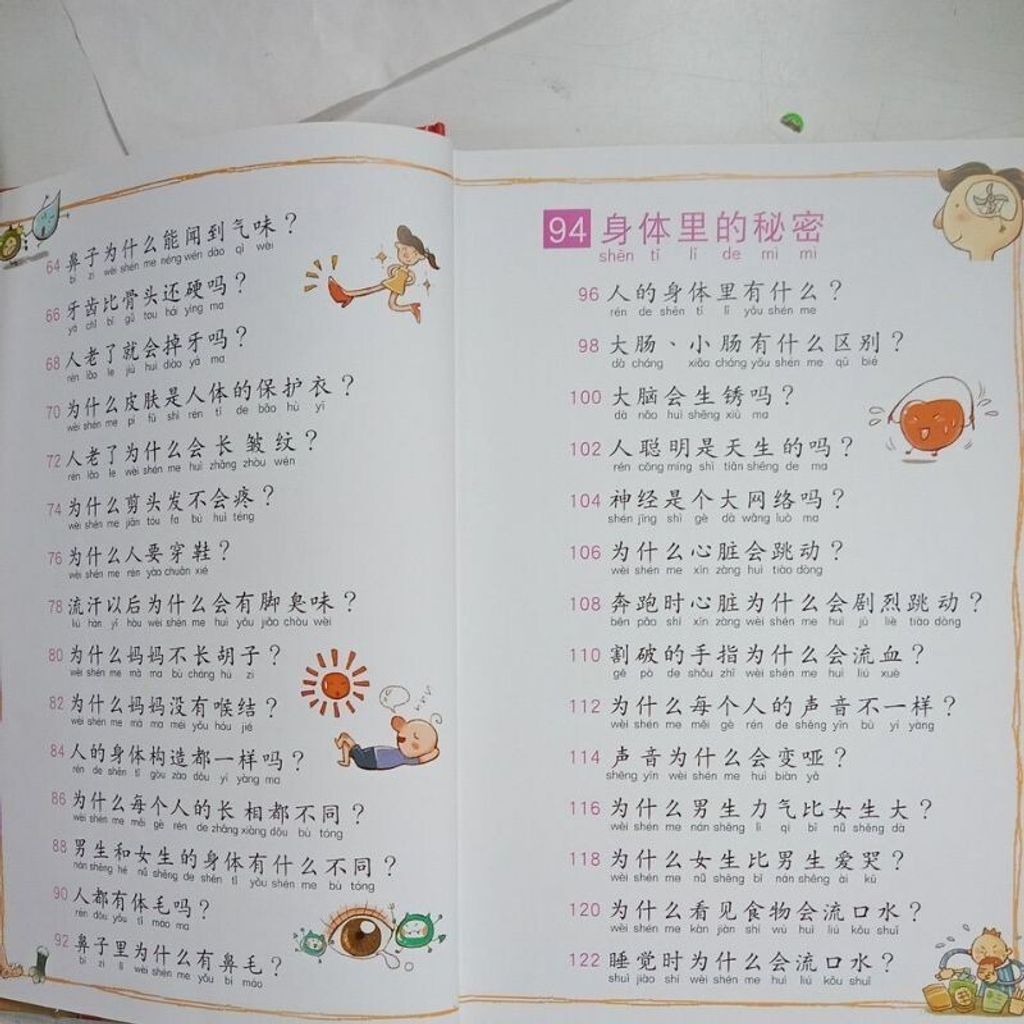 64 鼻子为什么能闻到气味？
bí zi wèi shén me néng wén dào qì wèi
66 牙齿比骨头还硬吗？
yá chǐ bǐ gǔ tou hái yìng ma
68 人老了就会掉牙吗？
rén lǎo le jiù huì diào yá ma
70 为什么皮肤是人体的保护衣？
wèi shén me pí fū shì rén tǐ de bǎo hù yī
72 人老了为什么会长皱纹？
rén lǎo le wèi shén me huì zhǎng zhòu wén
74 为什么剪头发不会疼？
wèi shén me jiǎn tóu fa bù huì téng
76 为什么人要穿鞋？
wèi shén me rén yào chuān xié
78 流汗以后为什么会有脚臭味？
liú hàn yǐ hòu wèi shén me huì yǒu jiǎo chòu wèi
80 为什么妈妈不长胡子？
wèi shén me mā ma bù cháng hú zi
82 为什么妈妈没有喉结？
wèi shén me mā ma méi yǒu hóu jié
84 人的身体构造都一样吗？
rén de shēn tǐ gòu zào dōu yí yàng ma
86 为什么每个人的长相都不同？
wèi shén me měi gè rén de zhǎng xiàng dōu bù tóng
88 男生和女生的身体有什么不同？
nán shēng hé nǚ shēng de shēn tǐ yǒu shén me bù tóng
90 人都有体毛吗？
rén dōu yǒu tǐ máo ma
92 鼻子里为什么有鼻毛？
bí zi lǐ wèi shén me yǒu bí máo
94 身体里的秘密
shēn tǐ lǐ de mì mì
96 人的身体里有什么？
rén de shēn tǐ lǐ yǒu shén me
98 大肠、小肠有什么区别？
dà cháng xiǎo cháng yǒu shén me qū bié
100 大脑会生锈吗？
dà nǎo huì shēng xiù ma
102 人聪明是天生的吗？
rén cōng míng shì tiān shēng de ma
104 神经是个大网络吗？
shén jīng shì gè dà wǎng luò ma
106 为什么心脏会跳动？
wèi shén me xīn zàng huì tiào dòng
108 奔跑时心脏为什么会剧烈跳动？
bēn pǎo shí xīn zàng wèi shén me huì jù liè tiào dòng
110 割破的手指为什么会流血？
gē pò de shǒu zhǐ wèi shén me huì liú xuè
112 为什么每个人的声音不一样？
wèi shén me měi gè rén de shēng yīn bù yí yàng
114 声音为什么会变哑？
shēng yīn wèi shén me huì biàn yǎ
116 为什么男生力气比女生大？
wèi shén me nán shēng lì qi bǐ nǚ shēng dà
118 为什么女生比男生爱哭？
wèi shén me nǚ shēng bǐ nán shēng ài kū
120 为什么看见食物会流口水？
wèi shén me kàn jiàn shí wù huì liú kǒu shuǐ
122 睡觉时为什么会流口水？
shuì jiào shí wèi shén me huì liú kǒu shuǐ